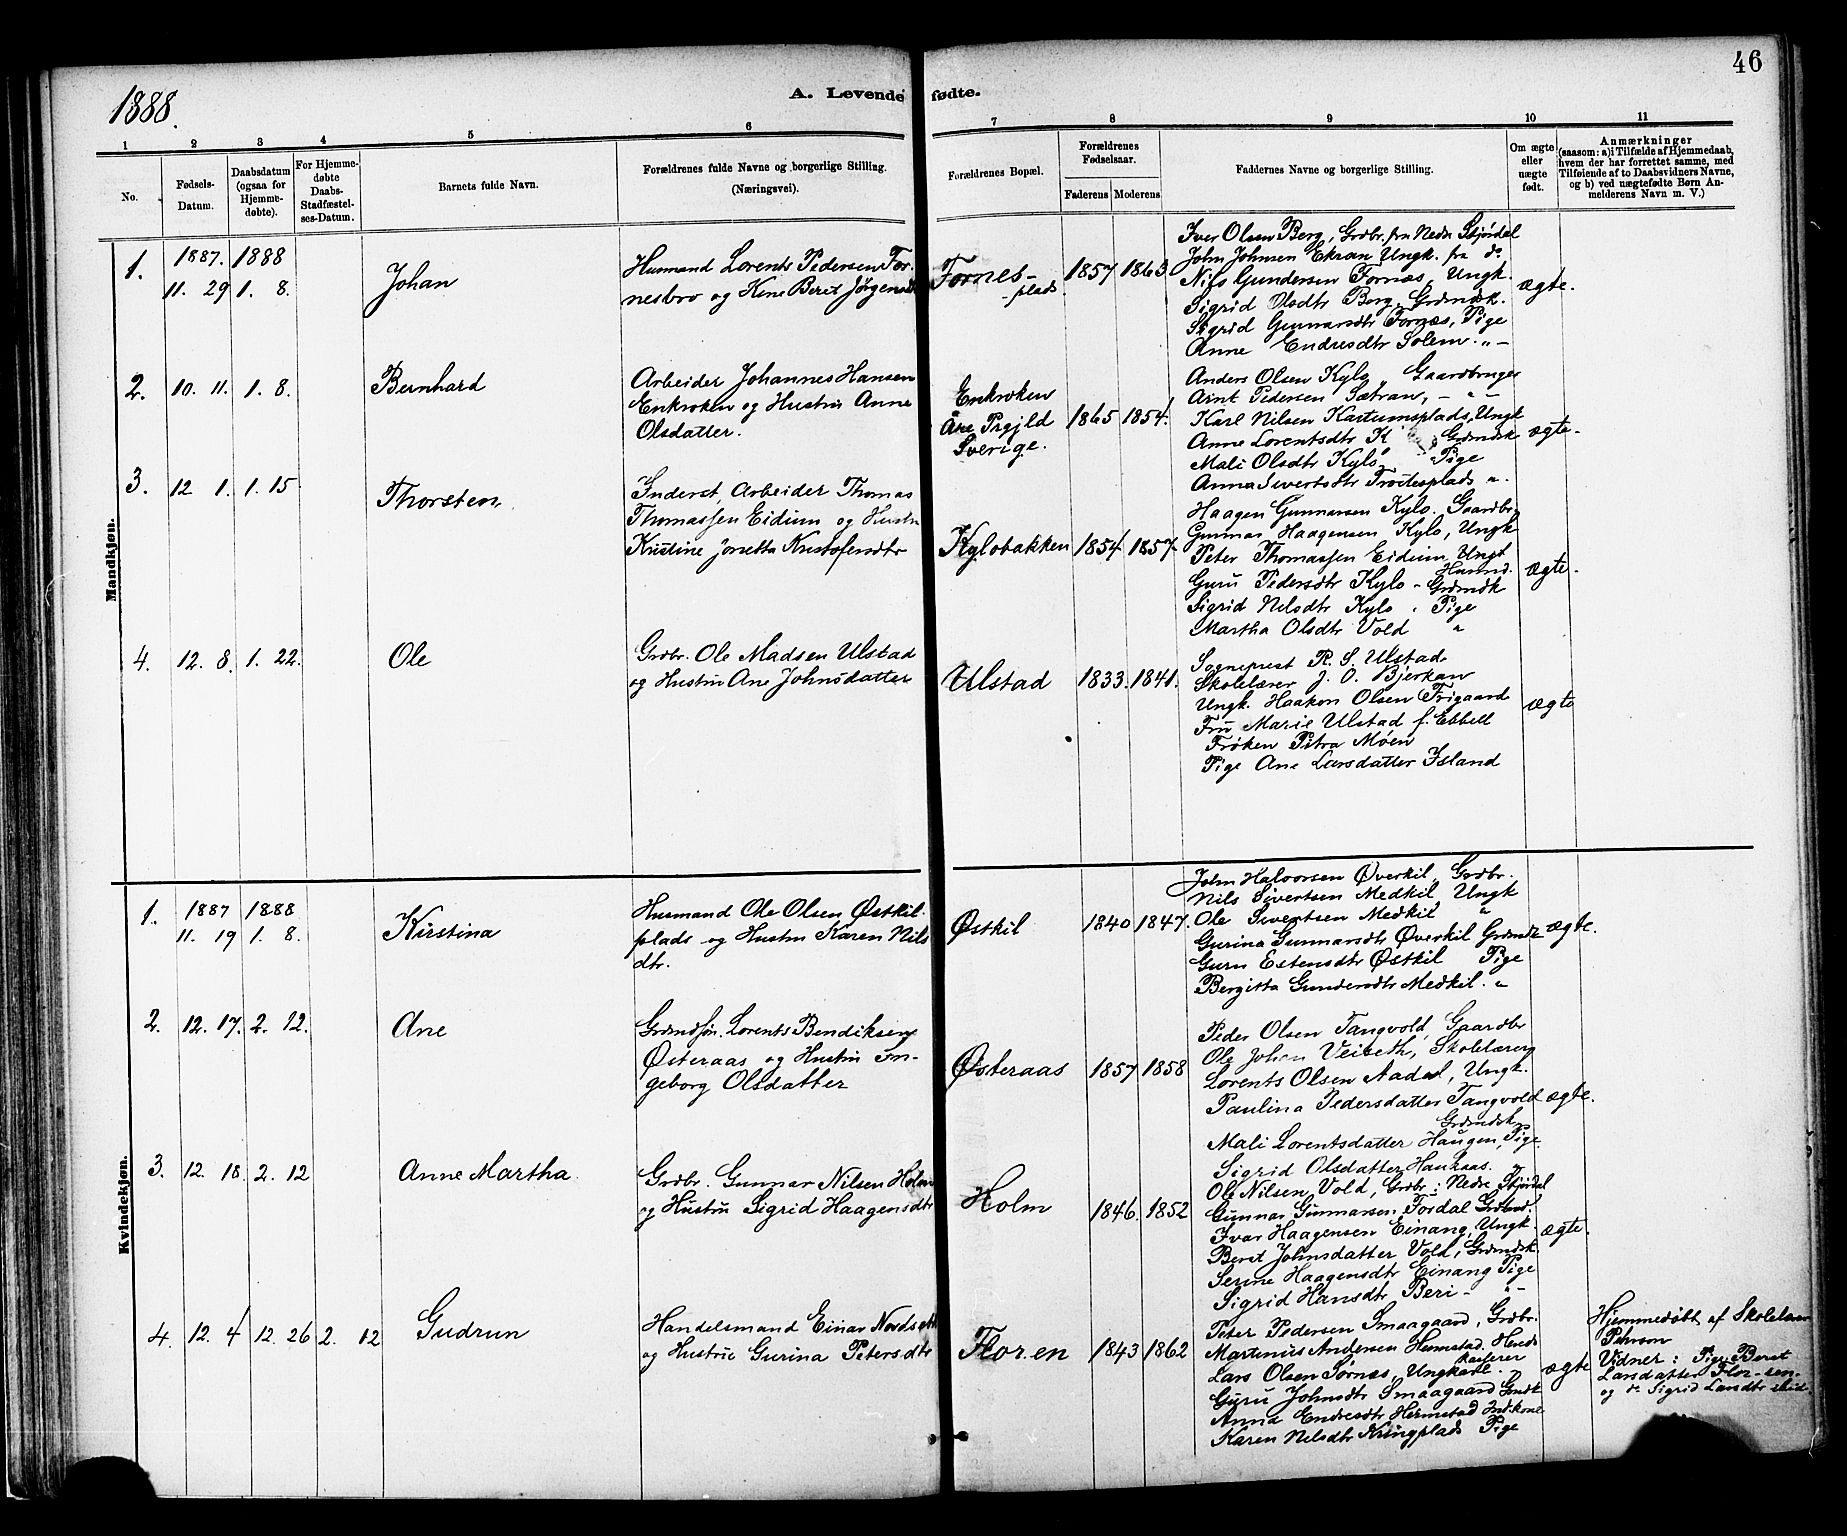 46
1888.
A. Levende fødte.
1 2 3 4 5 6 7 8 9 10 11
No.
Fødsels-Datum.
Daabsdatum (ogsaa for Hjemme-døbte).
For Hjemme-døbte Daabs-Stadfæstel-ses-Datum.
Barnets fulde Navn.
Forældrenes fulde Navne og borgerlige Stilling. (Næringsvei).
Forældrenes Bopæl.
Forældrenes Fødselsaar.
Faderens Moderens
Faddernes Navne og borgerlige Stilling.
Om ægte eller uægte født.
Anmærkninger
(saasom: a) i Tilfælde af Hjemmedaab,
hvem der har forrettet samme, med
Tilføiende af to Daabsvidners Navne,
og b) ved uægtefødte Børn An-
melderens Navn m. V.)
Mandkjøn.
1. 1887. 11. 29 1888 1. 8. Johan
Husmand Lorents Pedersen For-
nesbro og Kone Beret Jørgensdtr
Fornes-
plads
1857 1863
Iver Olsen Berg, Grdbr. fra Nedre Stjørdal
John Johnsen Ekran Ungk. fra do
Nils Gundersen Fornæs, Ungk.
Sigrid Olsdtr Berg, Grdmdsk.
Sigrid Gunnarsdtr Fornæs, Pige
Anne Endresdtr Solem. "—
ægte.
2. 10. 11. 1. 8. Bernhard
Arbeider Johannes Hansen
Enkroken og Hustru Anne
Olsdatter.
Enkroken
Åre Prgjld
Sverige.
1865 1854.
Anders Olsen Kylo, Gaardbruger
Arnt Pedersen Sætran, — " —
Karl Nilsen Kartumsplads, Ungk
Anne Lorentsdtr K Grdmdsk
Mali Olsdtr Kylo, Pige
Anna Sivertsdtr Trøitesplads ".
ægte.
3. 12 1. 1. 15 Thorsten
Inderst, Arbeider Thomas
Thomassen Eidum og Hustru
Kristine Josetta Kristofersdtr
Kylobakken
1854 1857
Haagen Gunnarsen Kylo. Gaardbr
Gunnar Haagensen Kylo, Ungk
Peter Thomassen Eidum, Ungk
Guru Pedersdtr Kylo - Grdmdsk
Sigrid Nilsdtr Kylo, Pige
Martha Olsdtr Vold "
ægte.
4. 12. 8. 1. 22. Ole
Grdbr. Ole Madsen Ulstad
og Hustru Ane Johnsdatter
Ulstad
1833. 1841.
Sogneprest R. S. Ulstad
Skolelærer J. O. Bjerkan
Ungk. Haakon Olsen Frigaard
Fru Marie Ulstad f. Ebbell
Frøken Petra Møen
Pige Ane Larsdatter Island
ægte
Kvindekjøn.
1. 1887 11. 19 1888 1. 8. Kirstina
Husmand Ole Olsen Østkil-
plads og Hustru Karen Nils
dtr.
Østkil
1840 1847.
John Halvorsen Øverkil, Grdbr.
Nils Sivertsen Medkil, Ungk
Ole Sivertsen Medkil "
Gurina Gunnarsdtr Øverkil Grdmdsk
Guru Estensdtr Østkil Pige
Bergitta Gundersdtr Medkil. "
ægte.
2. 12. 17. 2. 12. Ane
Grdmdsøn. Lorents Bendiksen
Østeraas og Hustru In-
geborg Olsdatter
Østeraas
1857 1858
Peder Olsen Tangvold, Gaardbr
Ole Johan Veiseth, Skolelærer
Lorents Olsen Aadal, Ungk.
Paulina Pedersdatter Tangvold
Grdmdsk
Mali Lorentsdatter Haugen, Pige
Sigrid Olsdatter Haukaas.
ægte.
3. 12. 18. 2. 12 Anne Martha
Grdbr. Gunnar Nilsen Holm
og Hustru Sigrid Haagensdtr
Holm
1846. 1852
Ole Nilsen Vold, Grdbr: Nedre Stjørdal
Gunnar Gunnarsen Fordal Grdmd.
Ivar Haagensen Einang, Ungk.
Beret Johnsdatter Vold, Grdmdsk.
Serine Haagensdtr Einang Pige
Sigrid Hansdtr Beri — " —
ægte.
4. 12. 4 12. 26 2. 12 Gudrun
Handelsmand Einar Nordseth
og Hustru Gurina Petersdtr
Floren
1843 1862
Peter Pedersen Smaagaard, Grdbr.
Martinus Andersen Hermstad, Hands
Lars Olsen Sørnæs, Ungkarl.
Guru Johnsdtr Smaagaard Grmdk
Anna Endresdtr Hermstad Indk.kone
Karen Nilsdtr Kringplads Pige
ægte
Hjemmedøbt af Skolelærer
Vidner: Pige Beret
Larsdatter Flor-sen-
og do Sigrid Larsdtr